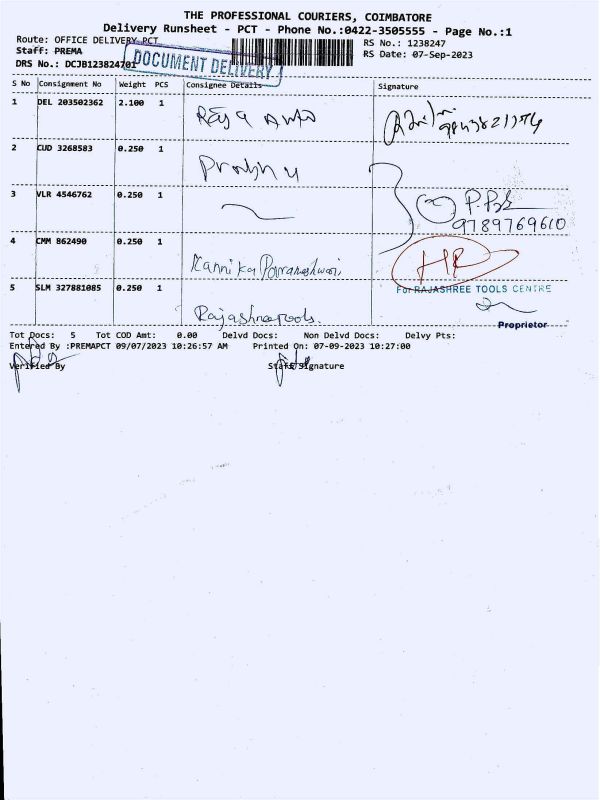 THE PROFESSIONAL COURIERS, COIMBATORE
Delivery Runsheet - PCT - Phone No.:0422-3505555 - Page No.:1
Route: OFFICE DELIVERY PCT
RS No.: 1238247
Staff: PREMA
DOCUMENT DELIVERY
RS Date: 07-Sep-2023
DRS No.: DCJB123824701
S No Consignment No Weight PCS Consignee Details Signature
1 DEL 203502362 2.100 1 Raja Auto
2 CUD 3268583 0.250 1 Prabhu
3 VLR 4546762 0.250 1
9789769610
4 CMM 862490 0.250 1 Kannika Parameshwari
HR
5 SLM 327881085 0.250 1 Rajashree tools.
For RAJASHREE TOOLS CENTRE
Proprietor
Tot Docs: 5 Tot COD Amt: 0.00 Delvd Docs: Non Delvd Docs: Delvy Pts:
Entered By :PREMAPCT 09/07/2023 10:26:57 AM Printed On: 07-09-2023 10:27:00
Verified By Staff Signature